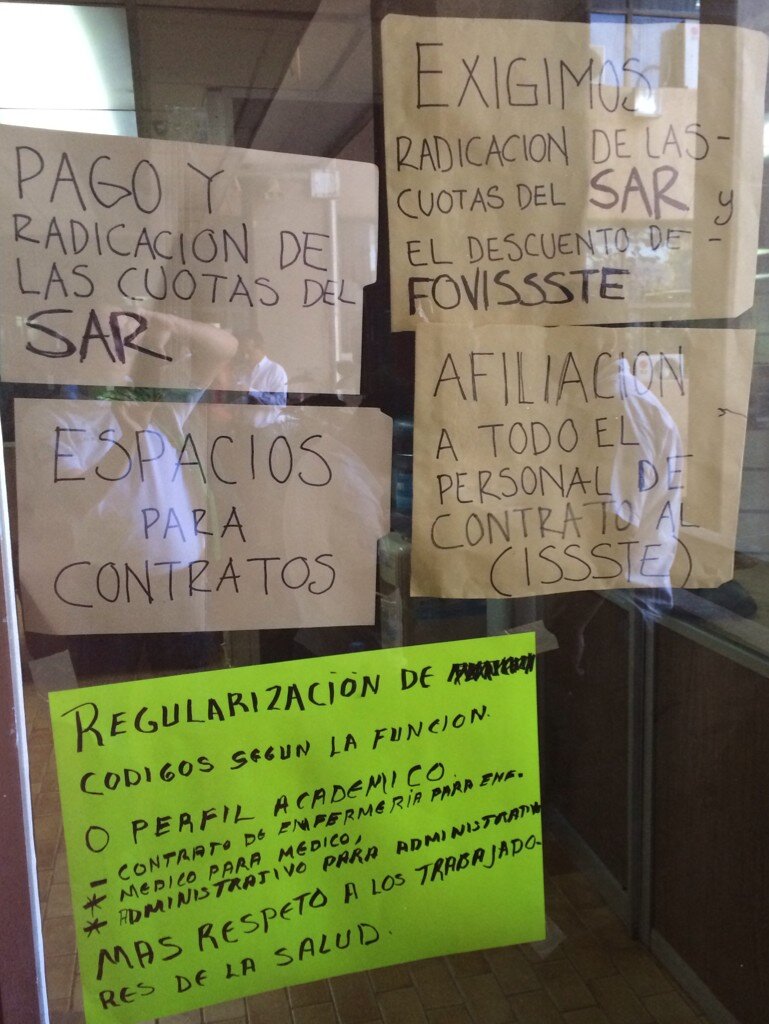 PAGO Y
RADICACION DE
LAS CUOTAS DEL
SAR
EXIGIMOS
RADICACION DE LAS-
CUOTAS DEL SAR y
EL DESCUENTO DE-
FOVISSSTE
ESPACIOS
PARA
CONTRATOS
AFILIACION
A TODO EL
PERSONAL DE
CONTRATO AL
(ISSSTE)
REGULARIZACIÓN DE
CODIGOS SEGUN LA FUNCION.
O PERFIL ACADEMICO.
- CONTRATO DE ENFERMERÍA PARA ENF.
* MEDICO PARA MEDICO,
* ADMINISTRATIVO PARA ADMINISTRATIVO
MAS RESPETO A LOS TRABAJADO-
RES DE LA SALUD.